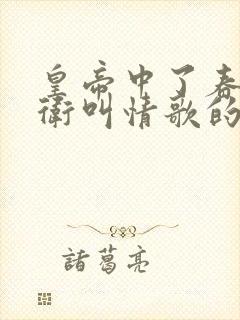 皇帝中了春
衛叫情歌的
諸葛亮